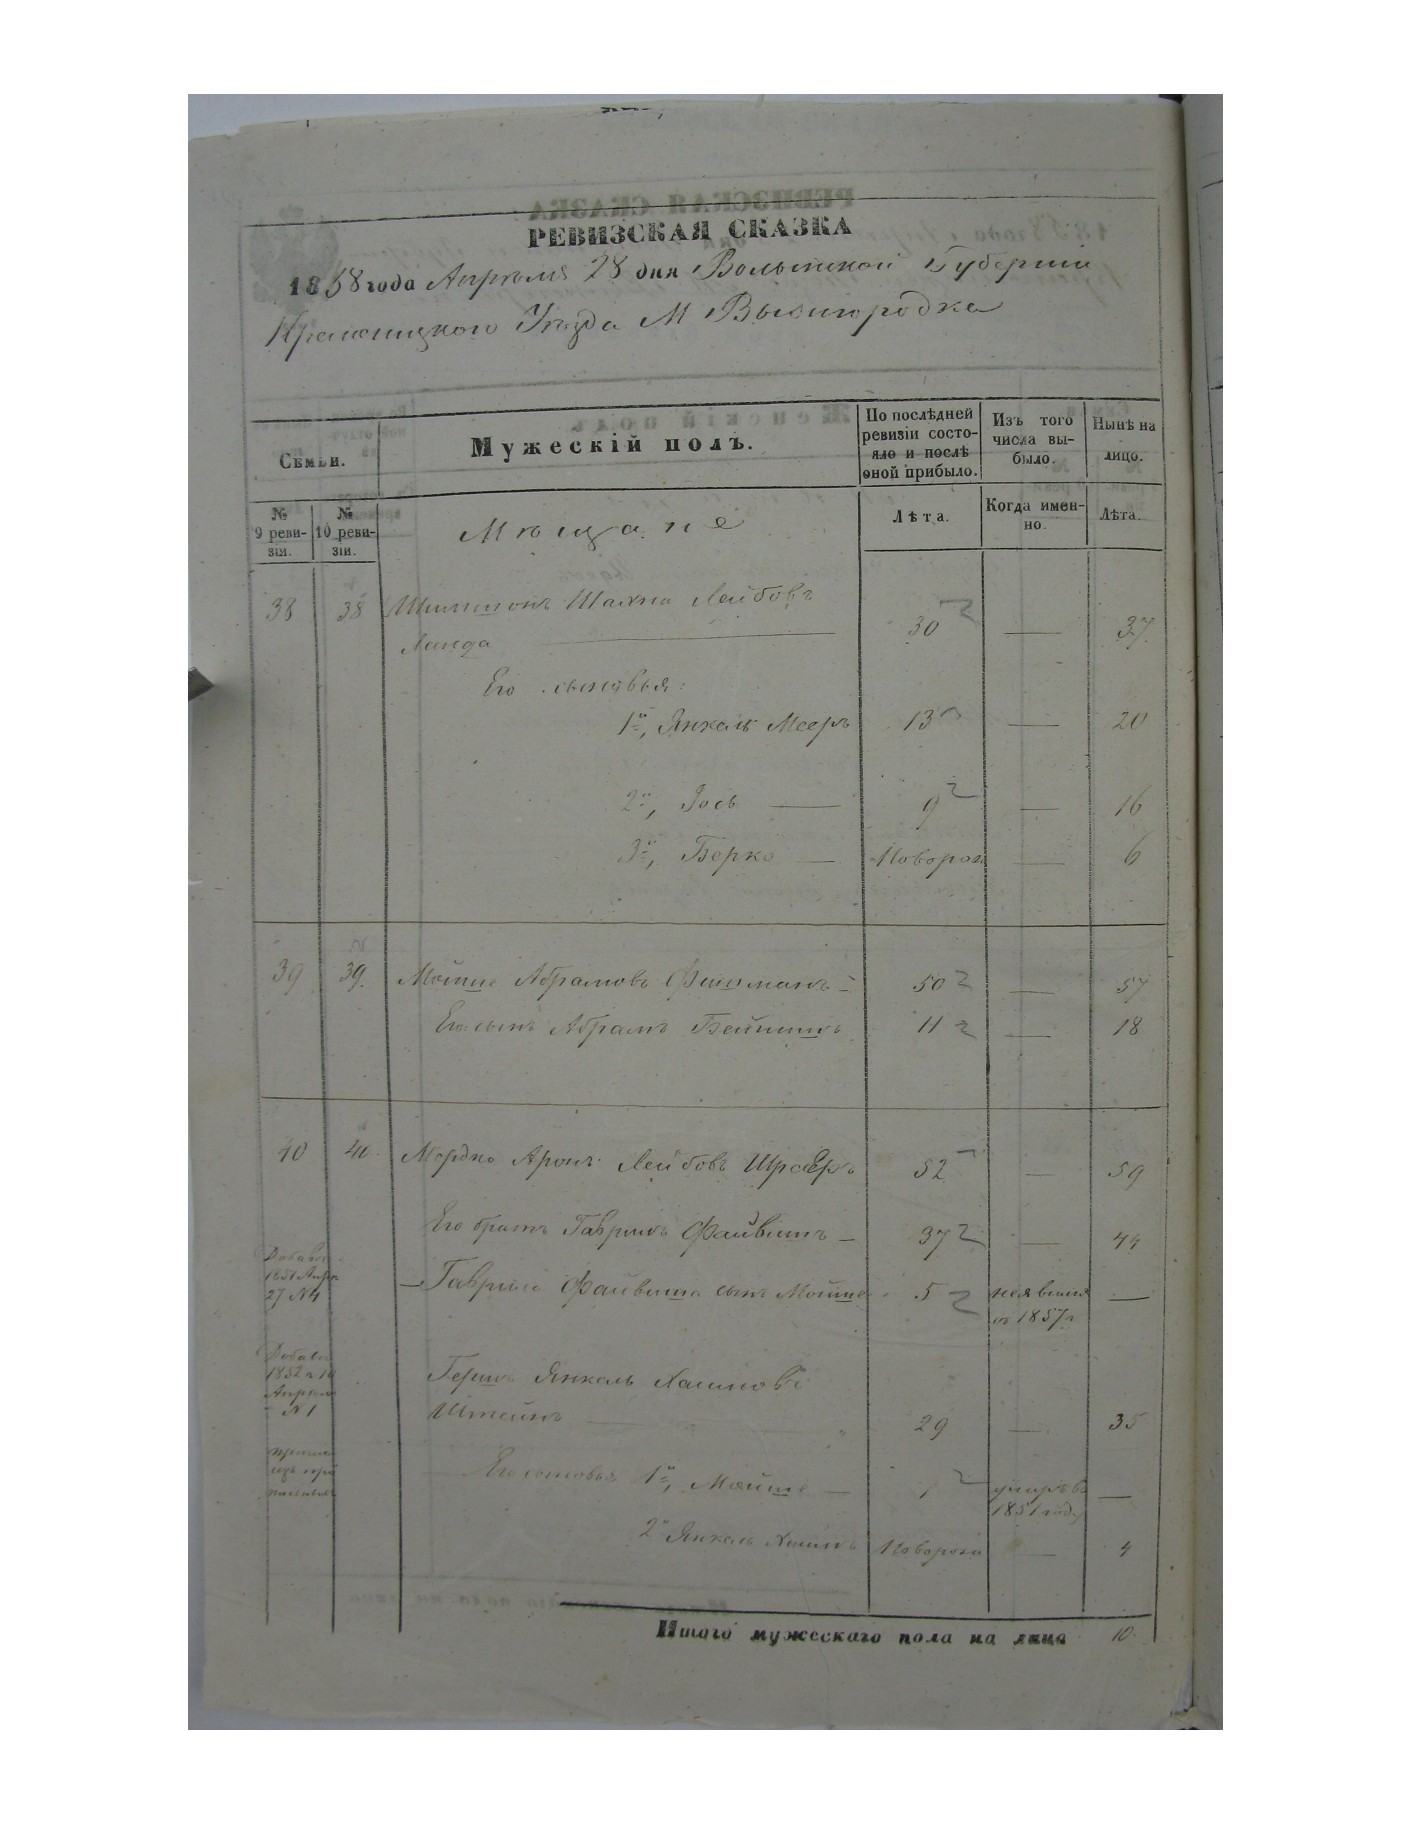 РЕВИЗСКАЯ СКАЗКА
1858 года Апреля 28 дня Волынской Губернии
Кременецкого Уезда М Вышгородка
Семьи.
Мужескій полъ.
По послѣдней ревизіи состояло и послѣ оной прибыло.
Изъ того числа выбыло.
Нынѣ на лицо.
№ 9 ревизіи.
№ 10 ревизіи.
Мещане
Лѣта.
Когда именно.
Лѣта.
38 38 Шимшонъ Шахна Лейбовъ
Ланда 30 — 37
Его сыновья:
1й, Янкель Мееръ 13 — 20
2й, Іось — 9 — 16
3й, Берко — Новорож — 6
39 39. Мойше Абрамовъ Фишманъ 50 — 57
Его сынъ Абрамъ Бейнишъ 11 — 18
40 40 Мордко Аронъ Лейбовъ 52 — 59
Его братъ Гаврилъ Файвишъ — 37 — 44
Добавл
1851 Апр
27 №4
Гаврила Файвиша сынъ Мойше 5 неявился —
съ 1857 г
Добавл
1852 г 10
Апреля
№ 1
Гершъ Янкель Хаимовъ
Штейнъ 29 — 35
Его сыновья 1й, Мойше — 1 умеръ въ —
1851 году
2й Янкель Хаимъ Новорож — 4
Итого мужескаго пола на лицо 10